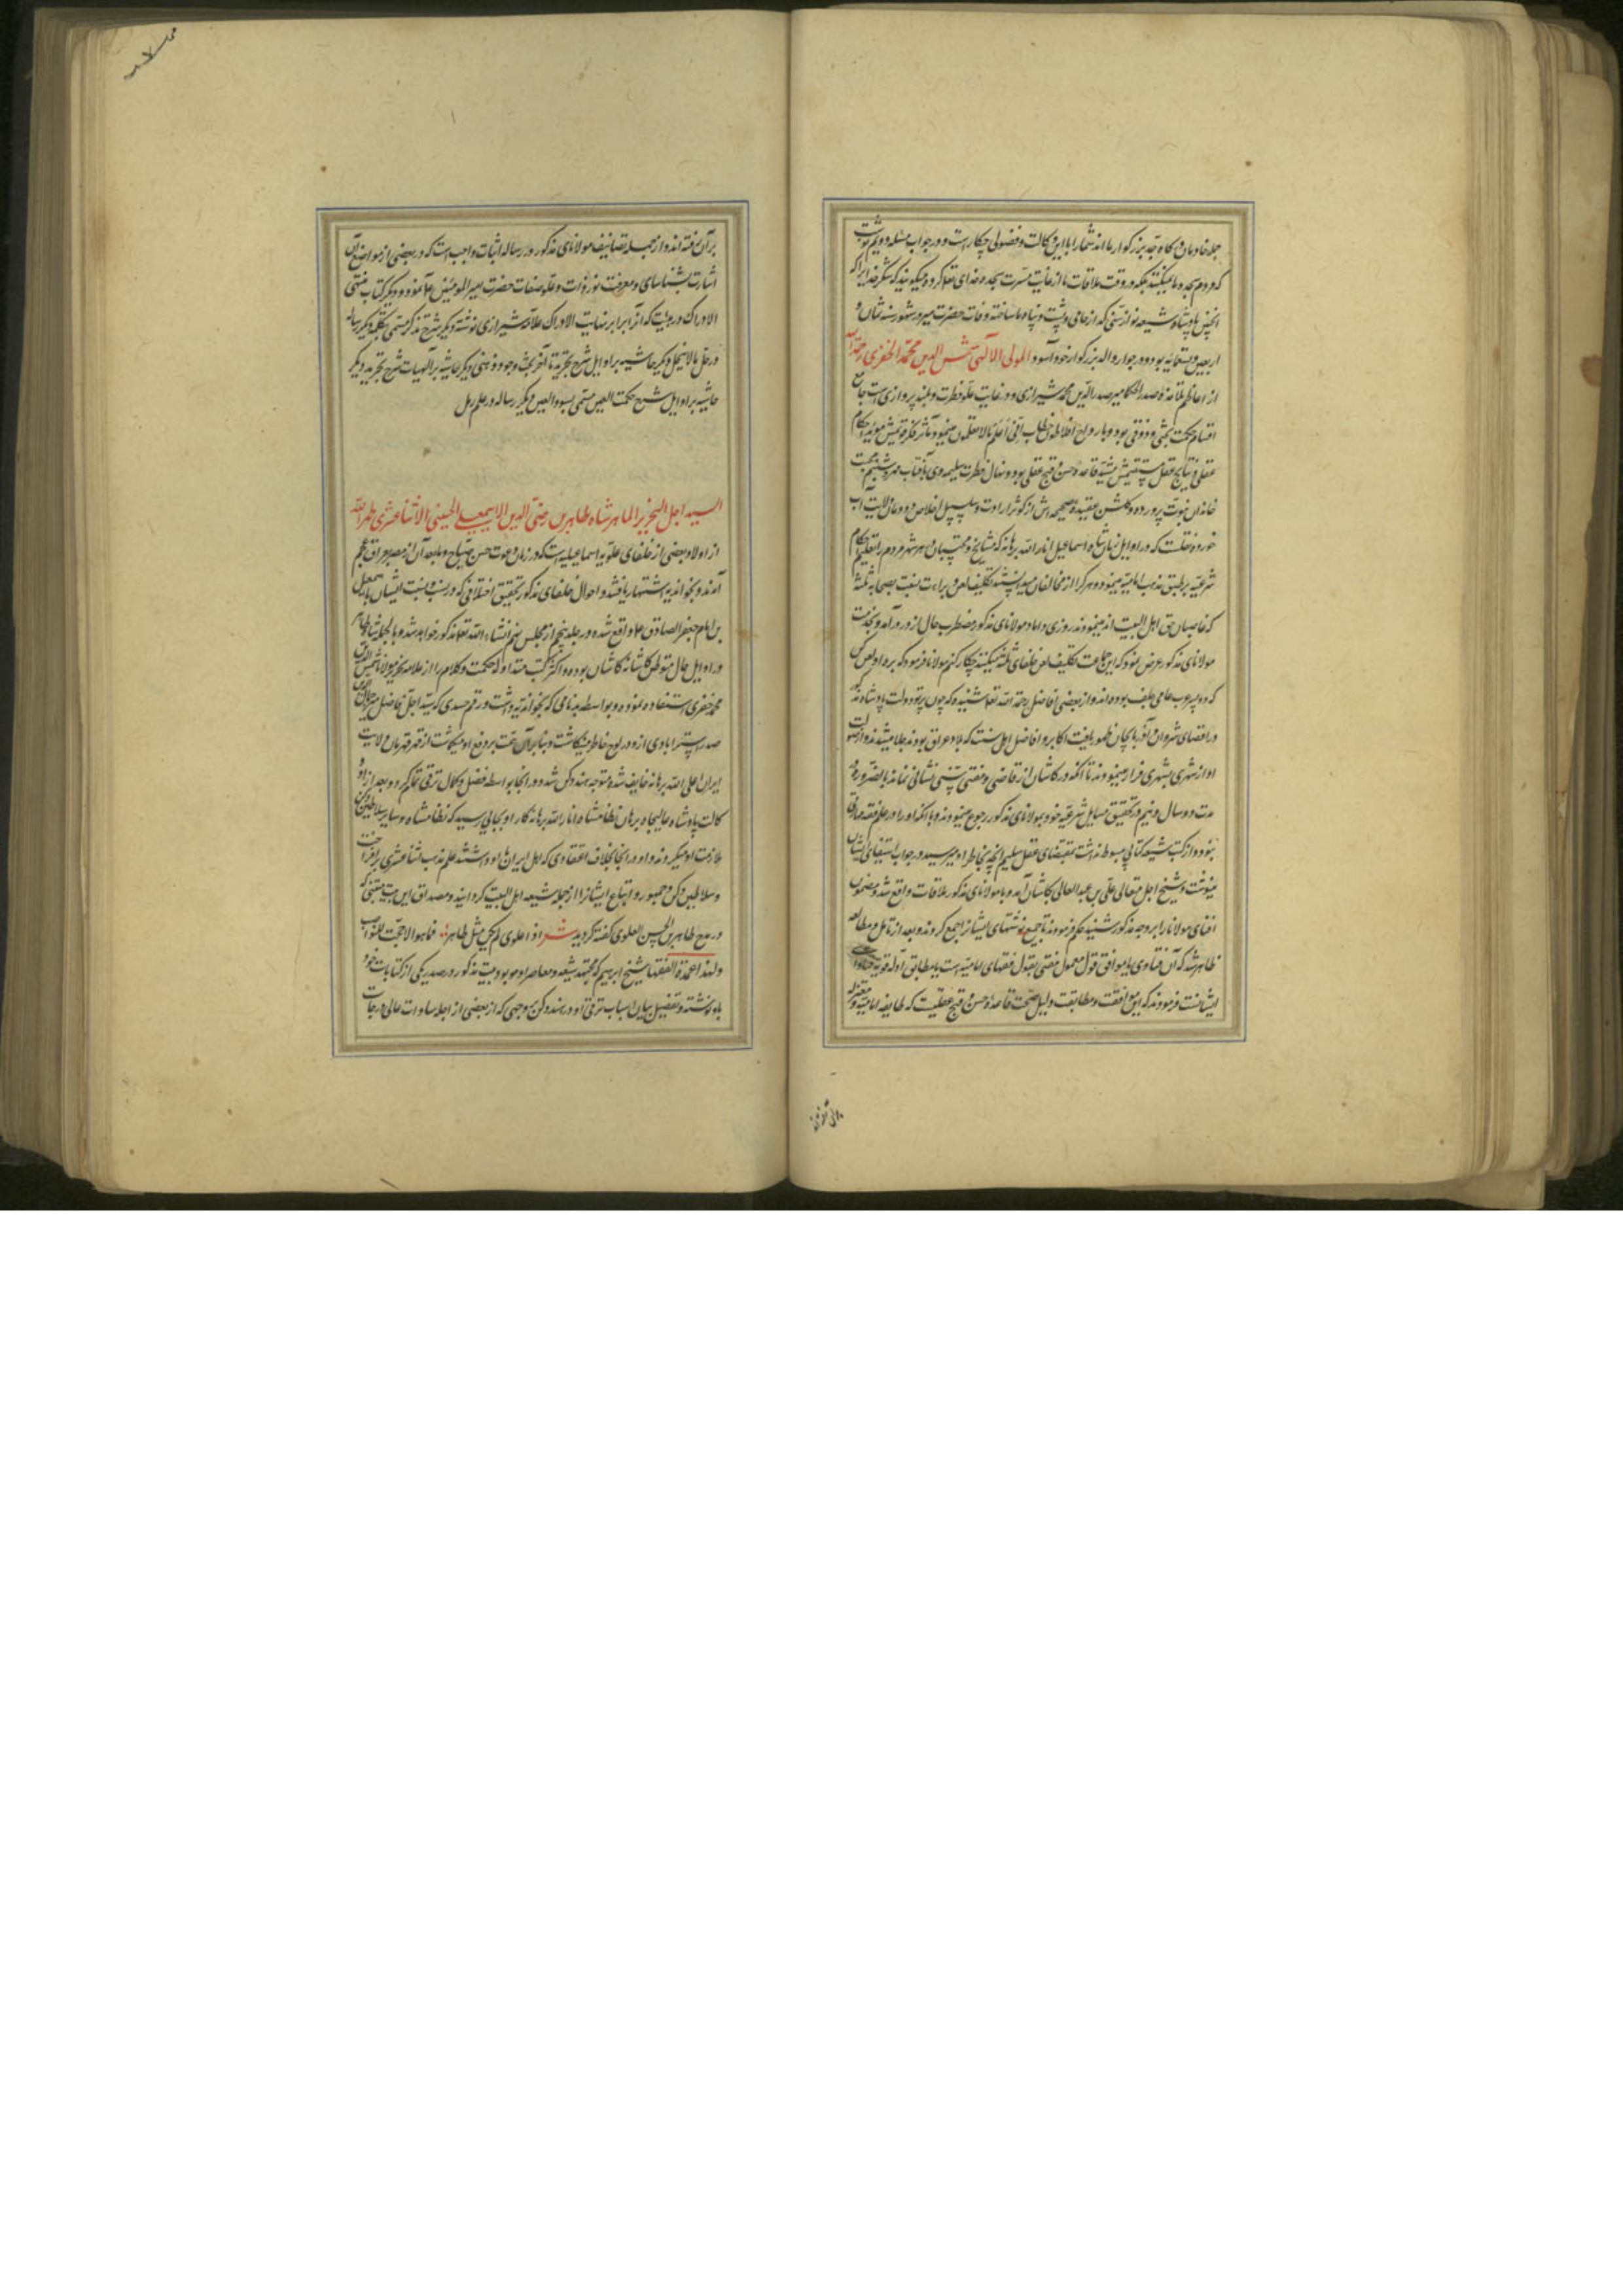 جمله خادمان درکاه جد بزرکوار ما اند شما را با این وکالت و فضولی چکارست و در جواب مسئله دویم نوشت
که مردم سجده ما نمیکنند بلکه در وقت ملاقات ما از غایت مسرت سجده خدای تعالی کرده میکویند که شکر خدا را که
اینچنین پادشاه شیعه نواز سنی کداز حامی و پشت و پناه ما ساخته وفات حضرت میر در شهور سنه ثمان و
اربعین و تسعمائه بود و در جوار والد بزرکوار خود آسود المولی الالهی شمس الدین محمد الخفری رحمه الله
از اعاظم تلامذه صدر الحکما میر صدر الدین محمد شیرازی و در غایت علو فطرت و بلند پروازی است جامع
اقسام حکمت بحثی و ذوقی بود و بارواح افلاطون خطاب انی اعلم ما لا تعلمون مینمود و تاثیر فکر قویمش موید احکام
عقلی و نتایج عقل مستقیمش مشید قاعده حسن و قبح عقلی بود و نهال فطرت سلیمه وی بآفتاب مهر و شبنم محبت
خاندان نبوت پرورده و کلشن عقیده صحیحه اش از کوثر ارادت و سلسبیل اخلاص دودمان ولایت آب
خورده نقلست که در اوایل زمان شاه اسماعیل انار الله برهانه که مشایخ و محتسبان در هر شهر مردم را تعلیم احکام
شرعیه بر طبق مذهب امامیه مینمودند و هر کرا از مخالفان میدانستند تکلیف لعن و براءت نسبت بصحابه ثلثه
که غاصبان حق اهل البیت اند مینمودند روزی داماد مولانای مذکور مضطرب حال از در درآمد و بخدمت
مولانای مذکور عرض نمود که این جماعت تکلیف لعن خلفای ثلثه میکنند چکار کنم مولانا فرمود که برو و لعن کن
که دو سه عرب عامی جلف بوده اند و از بعضی افاضل رحمه الله تعالی شنیده که چون پرتو دولت پادشاه مذکور
در اقصای شروان و آذربایجان ظهور یافت اکابر و افاضل اهل سنت که در بلاد عراق بودند جلا میشدند و از صولت
او از شهری بشهری فرار مینمودند تا آنکه در کاشان از قاضی و مفتی سنی نشانی نماند بالضروره
مدت دو سال و نیم در تحقیق مسایل شرعیه خود بمولانای مذکور رجوع مینمودند و با آنکه او را در علم فقه مهارتی
نبود و از کتب شیعه کتابی مبسوط نداشت بمقتضای عقل سلیم آنچه بخاطر او میرسید در جواب استفتای ایشان
مینوشت و شیخ اجل متعالی علی بن عبد العالی بکاشان آمد و با مولانای مذکور ملاقات واقع شد و مضمون
افتای مولانا را بر وجه مذکور شنید حکم فرمودند تا جمیع نوشتهای ایشان را جمع کردند و بعد از تامل و مطالعه
ظاهر شد که آن فتاوی یا موافق قول معمول مفتی بقول فقهای امامیه است یا مطابق ادله قویه
ایشانست فرمودند که این موافقت و مطابقت دلیل صحت قاعده حسن و قبح عقلیست که طایفه امامیه و معتزله
بر آن رفته اند و از جمله تصانیف مولانای مذکور در رساله اثبات واجب است که در بعضی از مواضع آن
اشارت بشناسای و معرفت نور ذات و علو صفات حضرت امیر المومنین ع نموده و دیکر کتاب منتهی
الادراک در هیئت که آنرا برابر نهایت الادراک علامه شیرازی نوشته دیکر شرح تذکره مسمی بتکمله دیکر رساله
در حل ما لا ینحل دیکر حاشیه بر اوایل شرح تجرید تا آخر بحث وجود ذهنی دیکر حاشیه بر الهیات شرح تجرید دیکر
حاشیه بر اوایل شرح حکمت العین مسمی بسواد العین دیکر رساله در علم رمل
السید اجل النحریر الماهر شاه طاهر بن رضی الدین الاسمعیلی الحسینی الاثنا عشری طهره الله
از اولاد بعضی از خلفای علویه اسماعیلیه است که در زمان دعوت حسن صباح و مابعد آن از مصر بعراق عجم
آمدند و بخواندیه اشتهار یافتند و احوال خلفای مذکور و تحقیق اختلافی که در نسب و نسبت ایشان باسمعیل
بن امام جعفر الصادق ع واقع شده در جلد پنجم از مجلس نهم انشاء الله تعالی مذکور خواهد شد و بالجمله شاه طاهر
در اوایل حال متوطن کاشانه کاشان بوده و اکثر کتب متداوله حکمت و کلام را از علامه نحریر مولانا شمس الدین
محمد خفری استفاده نموده و بواسطه بدنامی که بخواندیه داشت و رقم حسدی که سید اجل فاضل میر جمال الدین
صدر استرابادی ازو در لوح خاطر مینکاشت و بنابر آن همت بر دفع او میکماشت از قهر قهرمان ولایت
ایران اعلی الله برهانه خایف شده متوجه هند و دکن شد و در انجا بواسطه فضل و کمال ترقی تمام کرد و بعد از او
کالت پادشاه عالیجاه برهان نظامشاه انار الله برهانه کار او بجایی رسید که نظامشاه و سایر سلاطین دکن
ملازمت او میکردند و او در انجا بخلاف اعتقادی که اهل ایران باو داشتند علم مذهب اثنا عشری برافراخت
و سلاطین دکن و جمهور و اتباع ایشانرا از جمله شیعه اهل البیت کردانید و مصداق این بیت متنبی که
در مدح طاهر بن الحسین العلوی کفته کردید شعر اذا علوی لم یکن مثل طاهر فما هو الا حجة للنواصب
و لهذا عمدة الفقها شیخ ابرهیم که مجتهد شیعه و معاصر او بود بیت مذکور در صدر یکی از کتابات خود
باو نوشته و تفصیل بیان اسباب ترقی او در هند و دکن بوجهی که از بعضی از اجله سادات عالی درجات